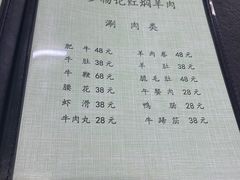 杨记红焖羊肉
涮 肉 类
肥 牛 48元 羊肉卷 48元
牛 肚 38元 羊 肚 38元
牛 鞭 68元 脆毛肚 48元
腰 花 38元 午餐肉 28元
虾 滑 38元 鸭 肠 28元
牛肉丸 28元 牛蹄筋 38元